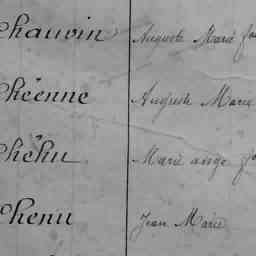 Chauvin Auguste Marie
Chéenne Auguste Marie
Chéhu Marie ange
Chenu Jean Marie